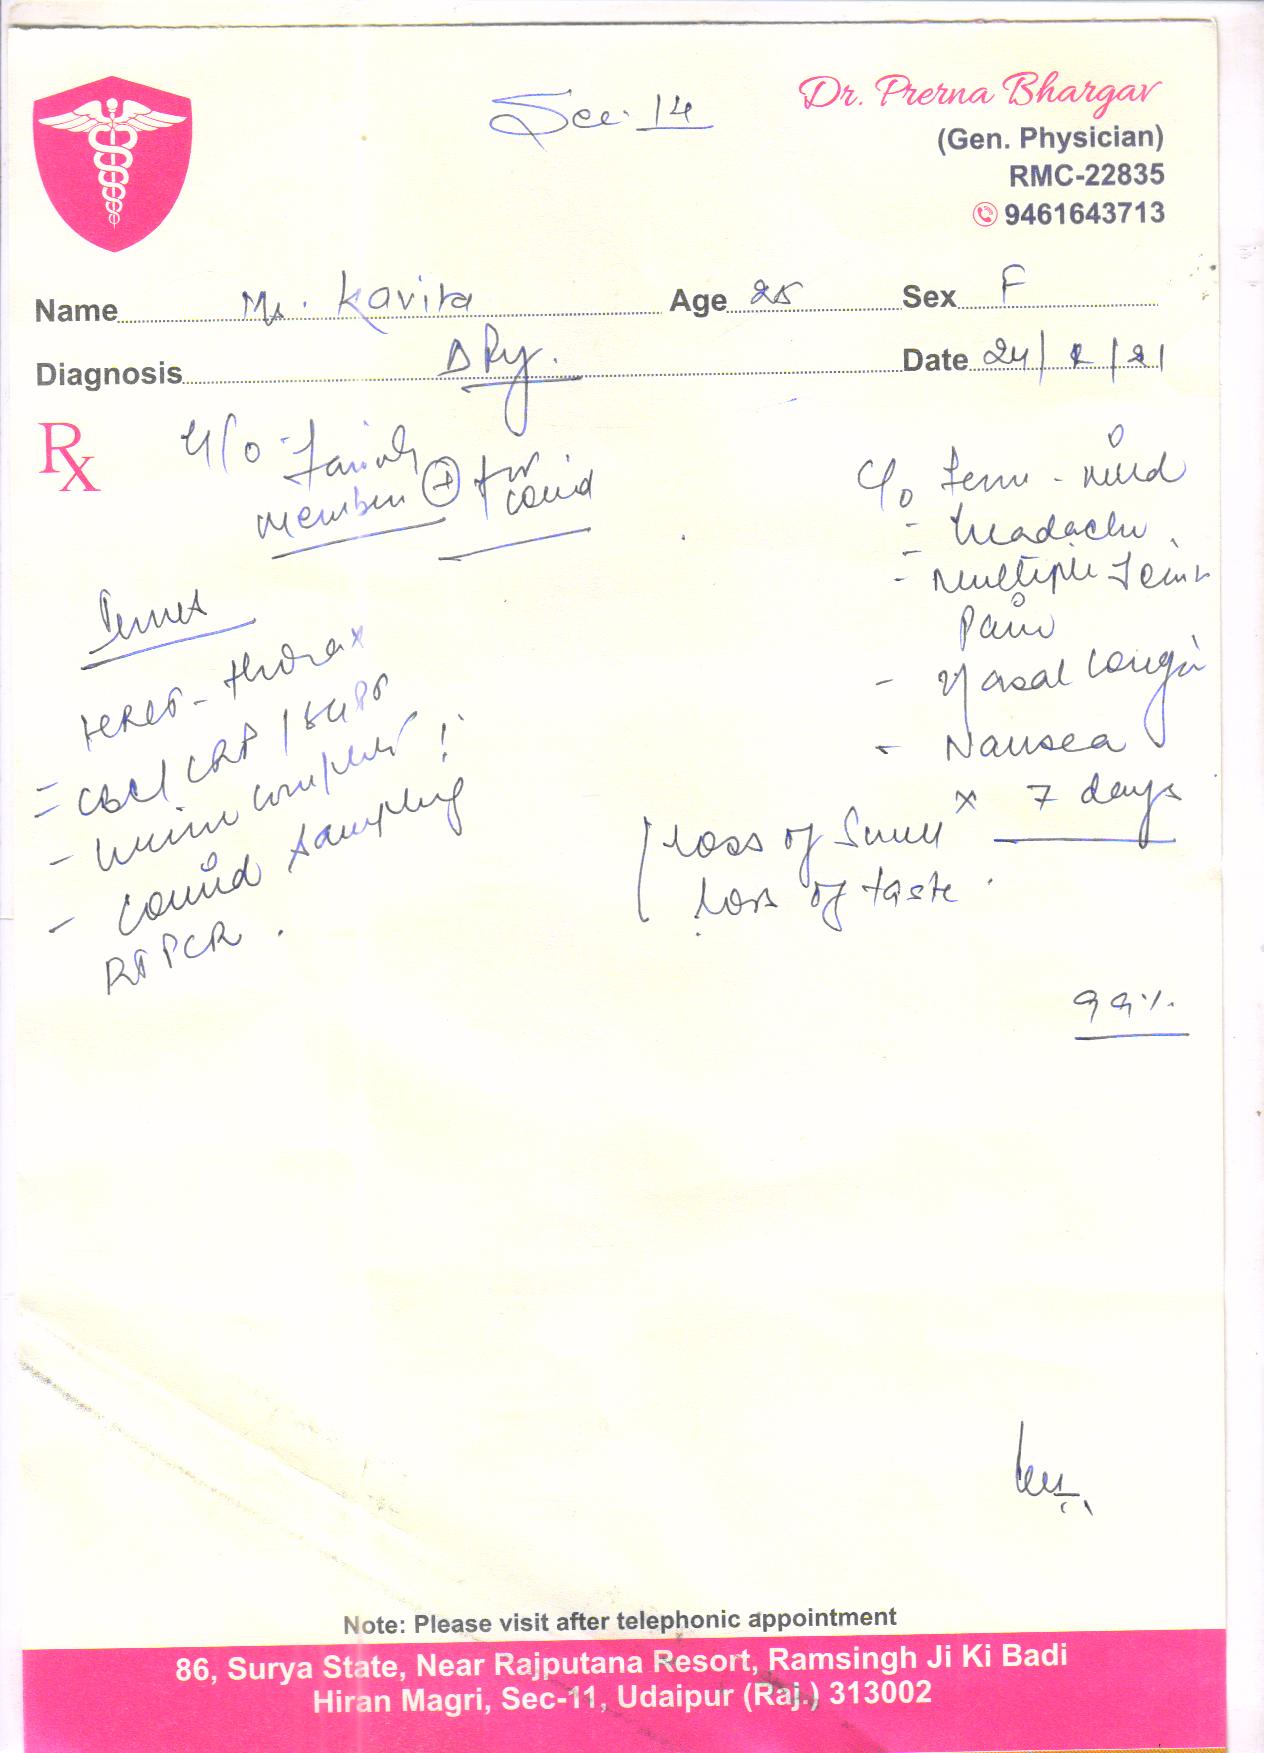 Sec. 14
Dr. Prerna Bhargav
(Gen. Physician)
RMC-22835
9461643713
Name Ms. Kavita Age 25 Sex F
Diagnosis Date 24/ /21
Rx
H/o Family
member + for
covid
C/o fever - mild
- headache
- Multiple Joint
Pain
- Nasal Conges
- Nausea
x 7 days
loss of Smell
loss of taste
99%
HRCT - thorax
= CBC / CRP / SGPT
- Urine complete
- Covid Sampling
RTPCR
Note: Please visit after telephonic appointment
86, Surya State, Near Rajputana Resort, Ramsingh Ji Ki Badi
Hiran Magri, Sec-11, Udaipur (Raj.) 313002